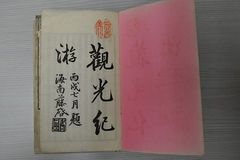 觀光紀
游
丙戌七月題
海南藤啓